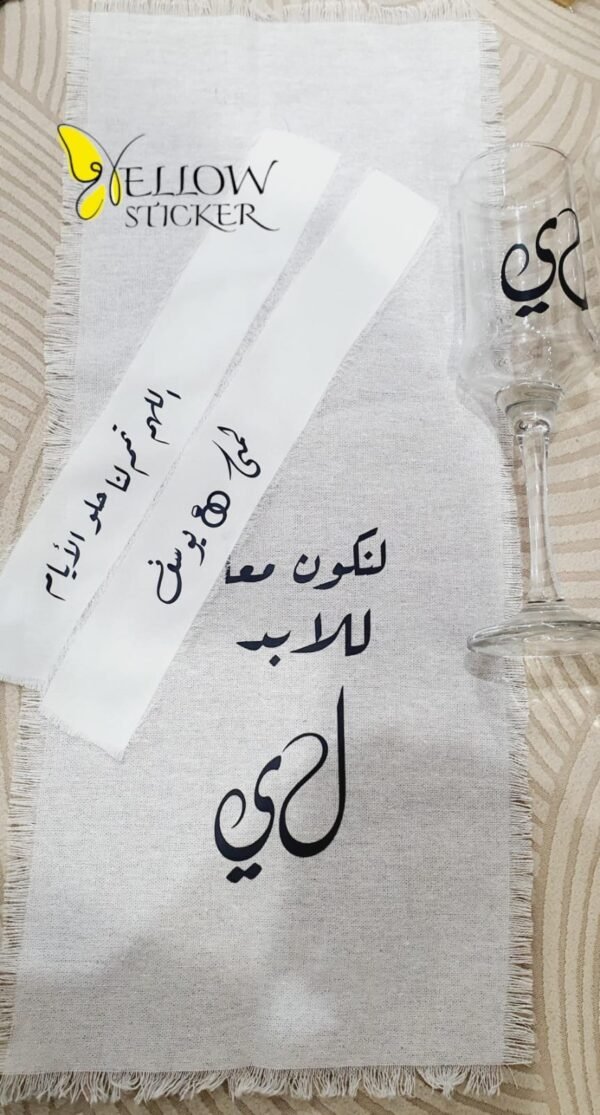 YELLOW
STICKER
اللهم تمم لنا حلو الأيام
يوسف
لنكون معا
للابد